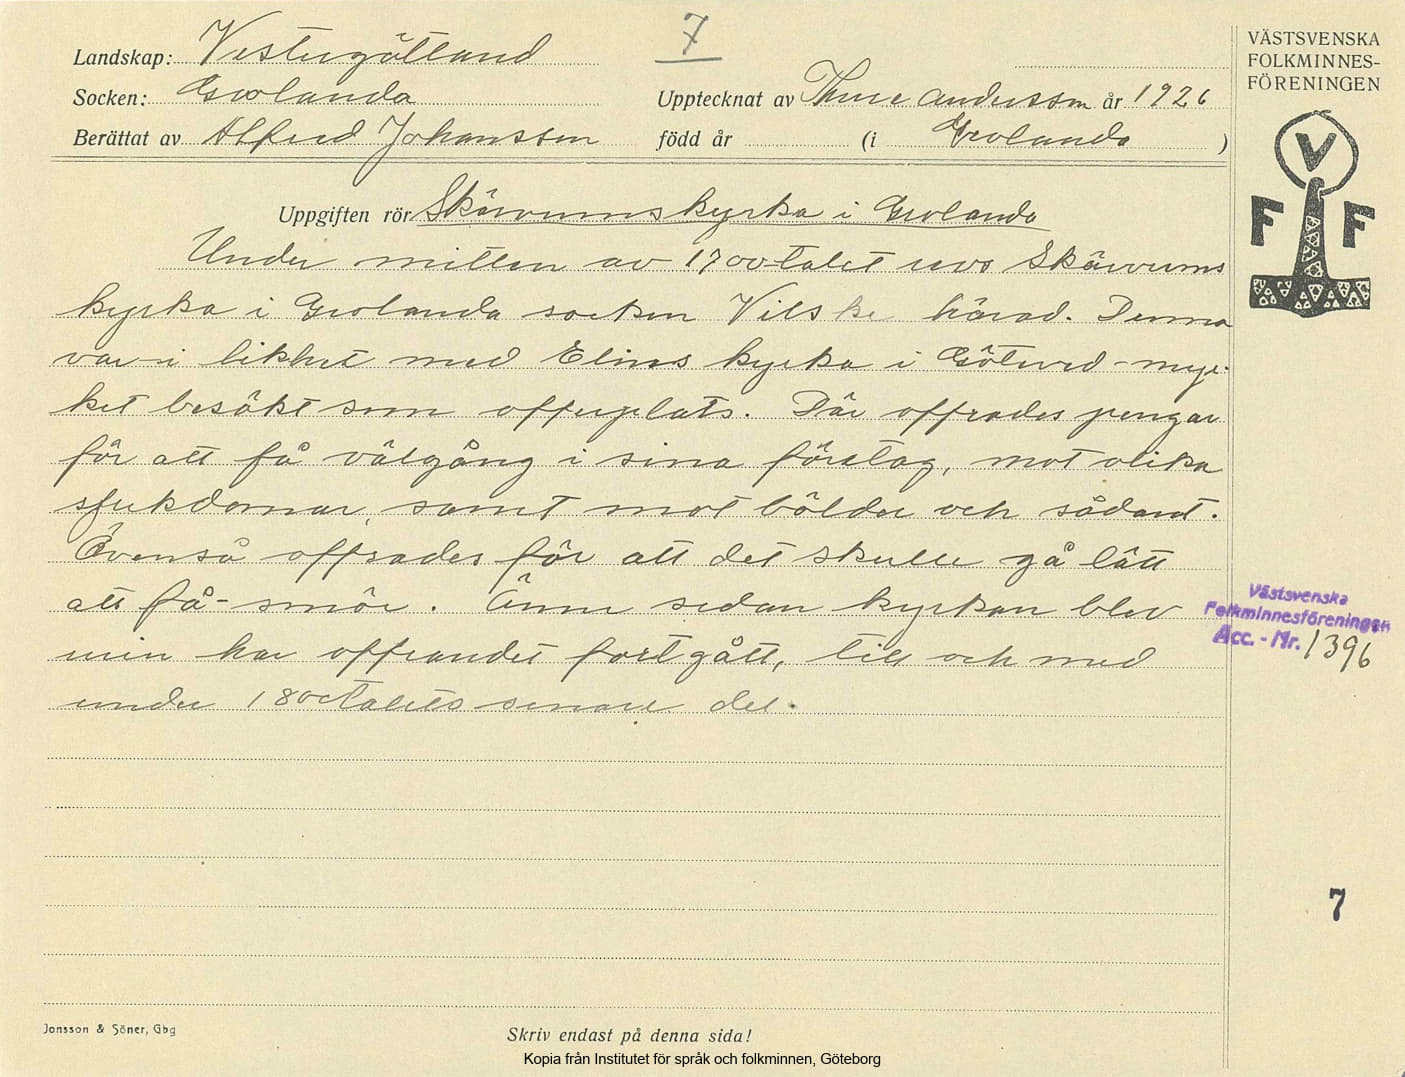 7
Landskap: Vestergötland
Socken: Grolanda
Upptecknat av Thure Andersson år 1926
Berättat av Alfred Johansson född år (i Grolanda )
Uppgiften rör Skärvums kyrka i Grolanda
Under mitten av 1700-talet revs Skärvums
kyrka i Grolanda socken Vilske härad. Denna
var i likhet med Elins kyrka i Götened - myc-
ket besökt som offerplats. Där offrades pengar
för att få välgång i sina företag, mot olika
sjukdomar, samt mot bölder och sådant.
Ävenså offrades för att det skulle gå lätt
att få smör. Ännu sedan kyrkan blev
ruin har offrandet fortgått, till och med
under 1800talets senare del.
VÄSTSVENSKA
FOLKMINNES-
FÖRENINGEN
V
F F
Västsvenska
Folkminnesföreningen
Acc. - Nr. 1396
7
Jonsson & Söner, Gbg
Skriv endast på denna sida!
Kopia från Institutet för språk och folkminnen, Göteborg